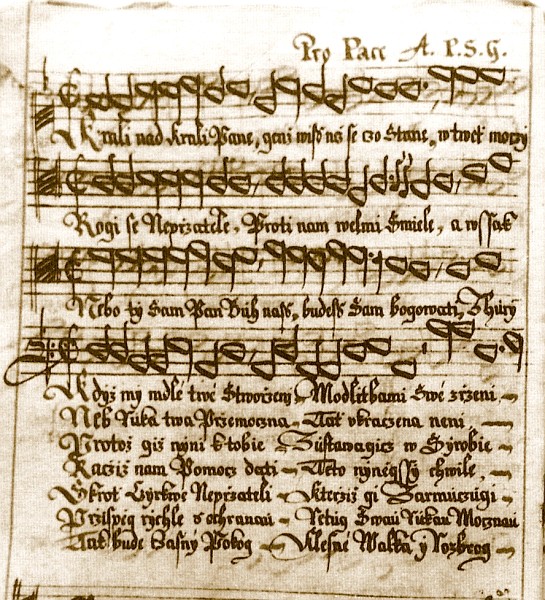 Pro Pace A. P. S. G.
Krali nad Krali Pane, genž wiß než se czo Stane, w twet moczy
Rogi se Nepržatele, Proti nam welmi Smiele, a wssak
Nebo ty Sam Pan Bůh nass, budess Sam bogowati, Thury
Když my mdlé twé Stworzeny Modlitbami Swé zrzeni
Neb Ruka twa Przemoczna Tat vkraczena neni
Protož giž nyni k tobie Zustawagicz w Syrobie
Racziž nam Pomocz dati Teto nyněgssy chwile
Skrot Cyrkwe Neprzateli Kterziž gi Zarmuczugi
Przispeg rychle s ochranau Netug Swau Rukau Mocznau
Tat bude czasny Pokog Klesné Walka y Rozbrog